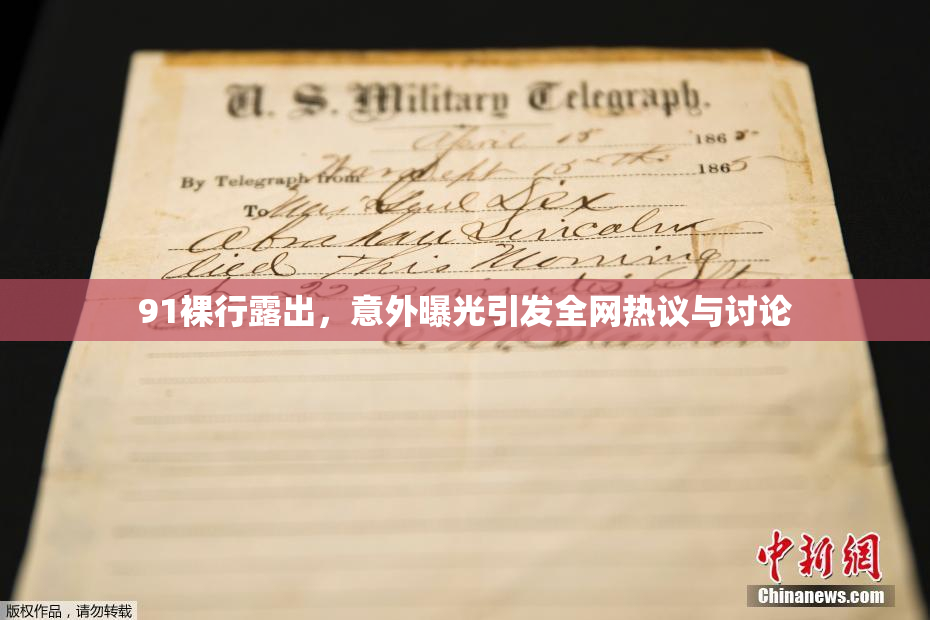 U. S. Military Telegraph.
April 15 1865
By Telegraph from War Dept 15th 1865
To Maj Genl Dix
Abraham Lincoln
died This Morning
at 22 minutes after
91裸行露出，意外曝光引发全网热议与讨论
E. M. Stanton
中新网
Chinanews.com
版权作品，请勿转载